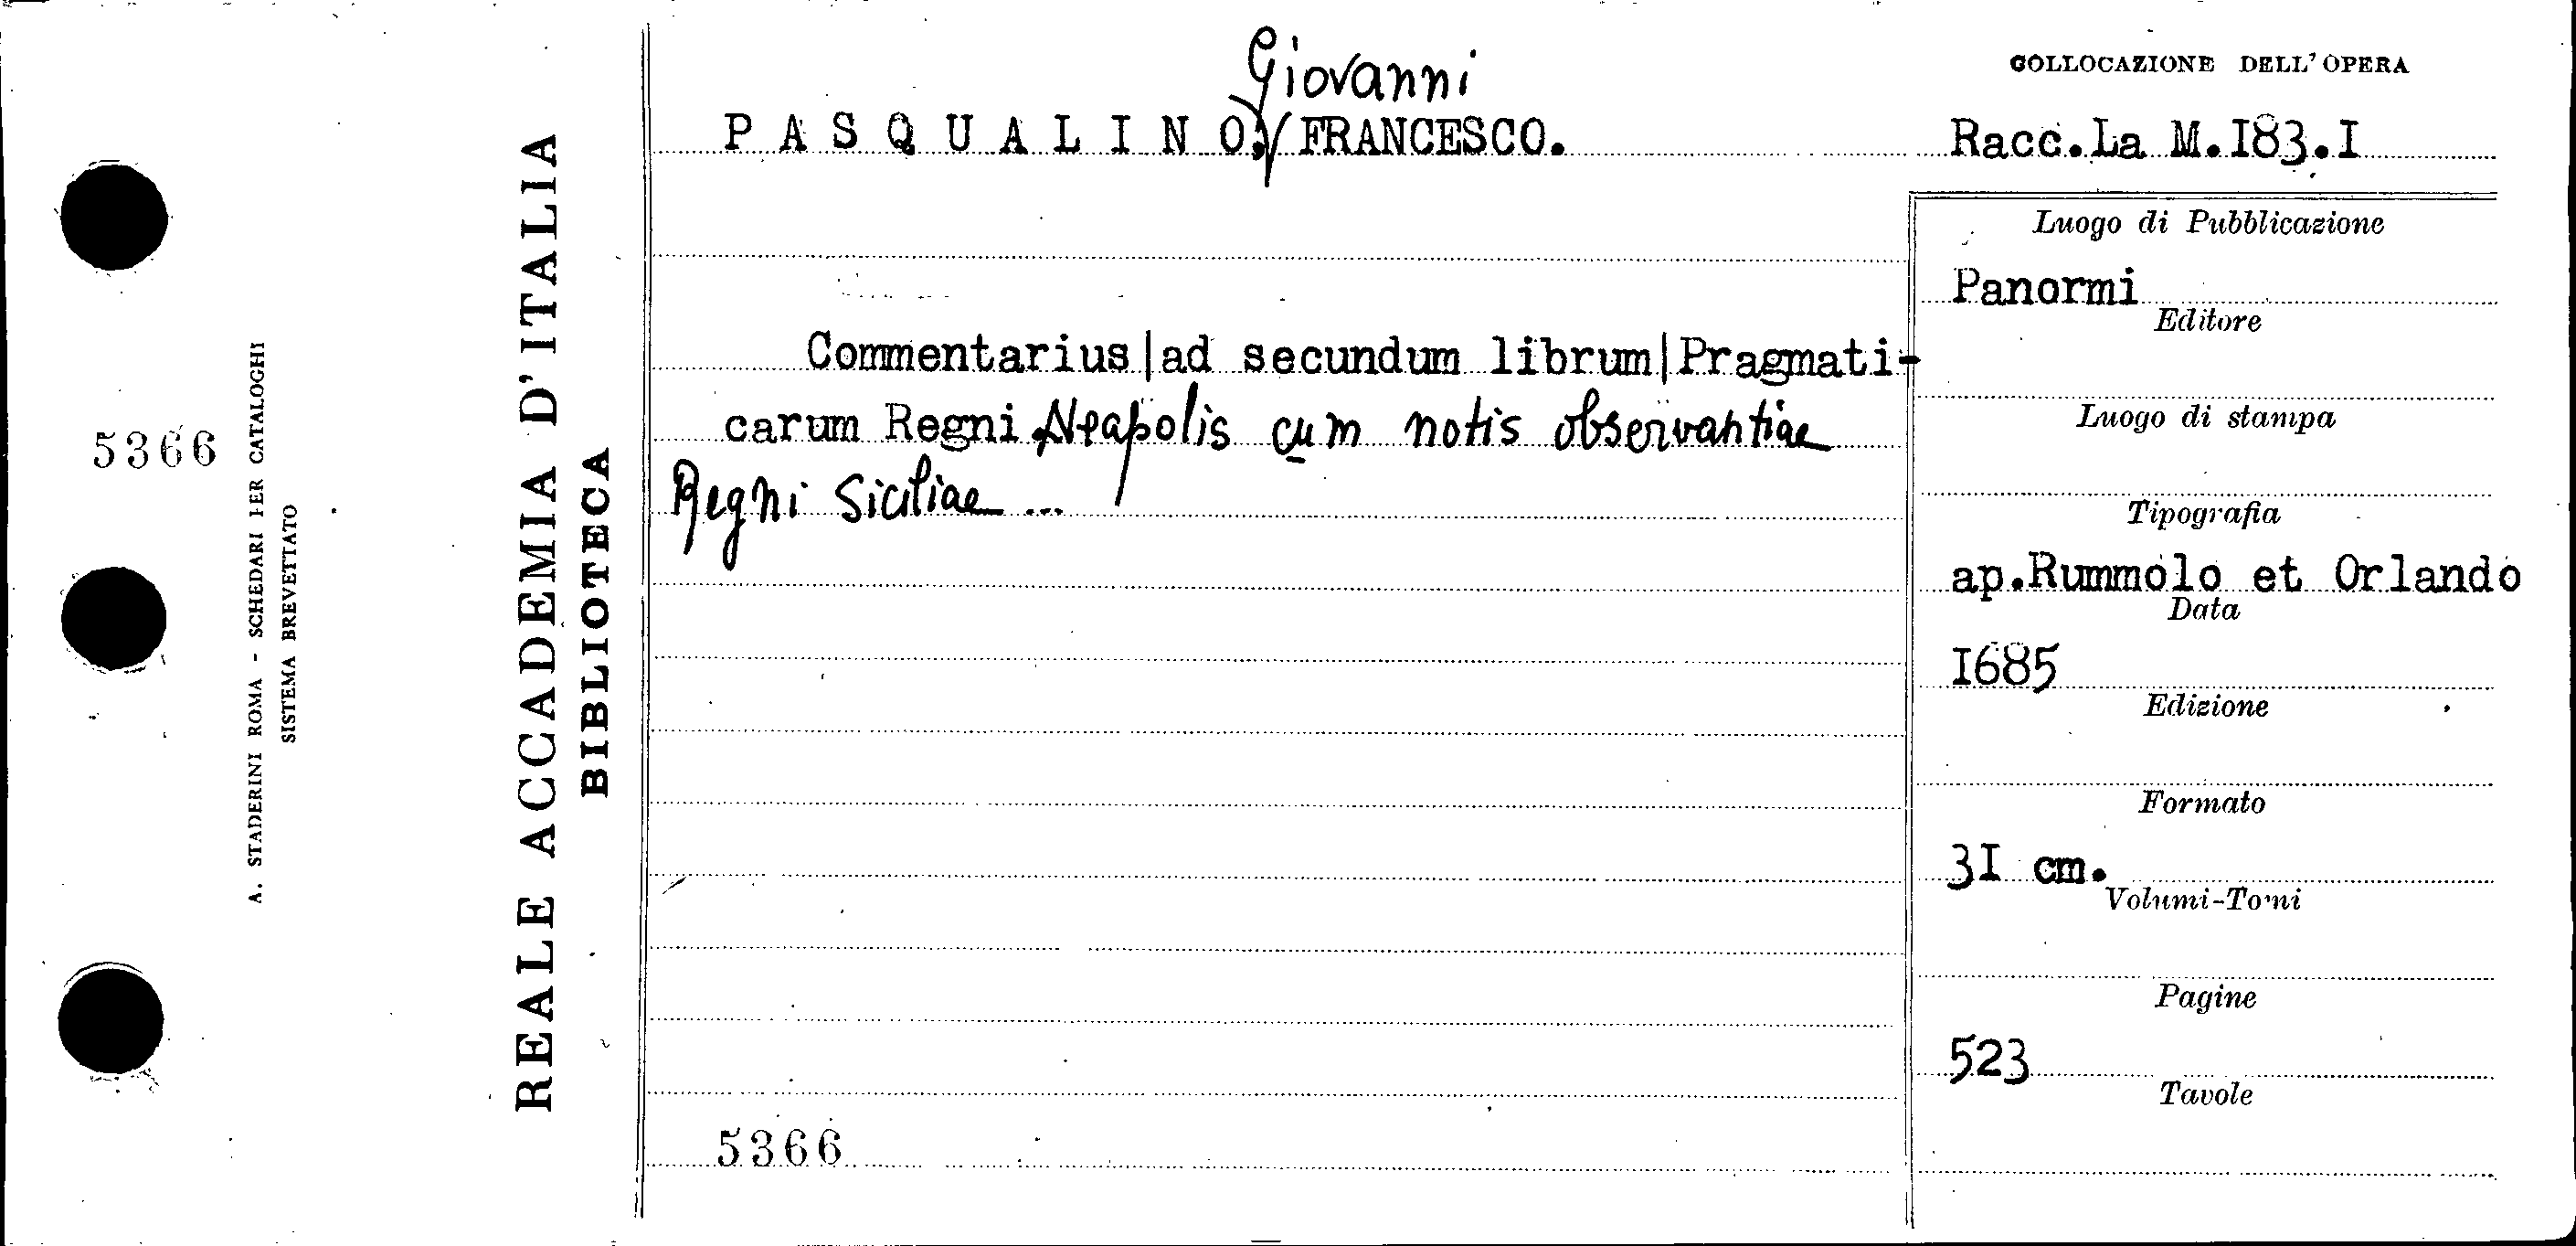 5366
A. STADERINI ROMA - SCHEDARI PER CATALOGHI
SISTEMA BREVETTATO
REALE ACCADEMIA D'ITALIA
BIBLIOTECA
Giovanni
PASQUALINO, FRANCESCO.
Commentarius|ad secundum librum|Pragmati-
carum Regni Neapolis cum notis observantiae
Regni Siciliae ...
5366
COLLOCAZIONE DELL'OPERA
Racc.La M.I83.I
Luogo di Pubblicazione
Panormi
Editore
Luogo di stampa
Tipografia
ap.Rummolo et Orlando
Data
I685
Edizione
Formato
3I cm.
Volumi-Tomi
Pagine
523
Tavole